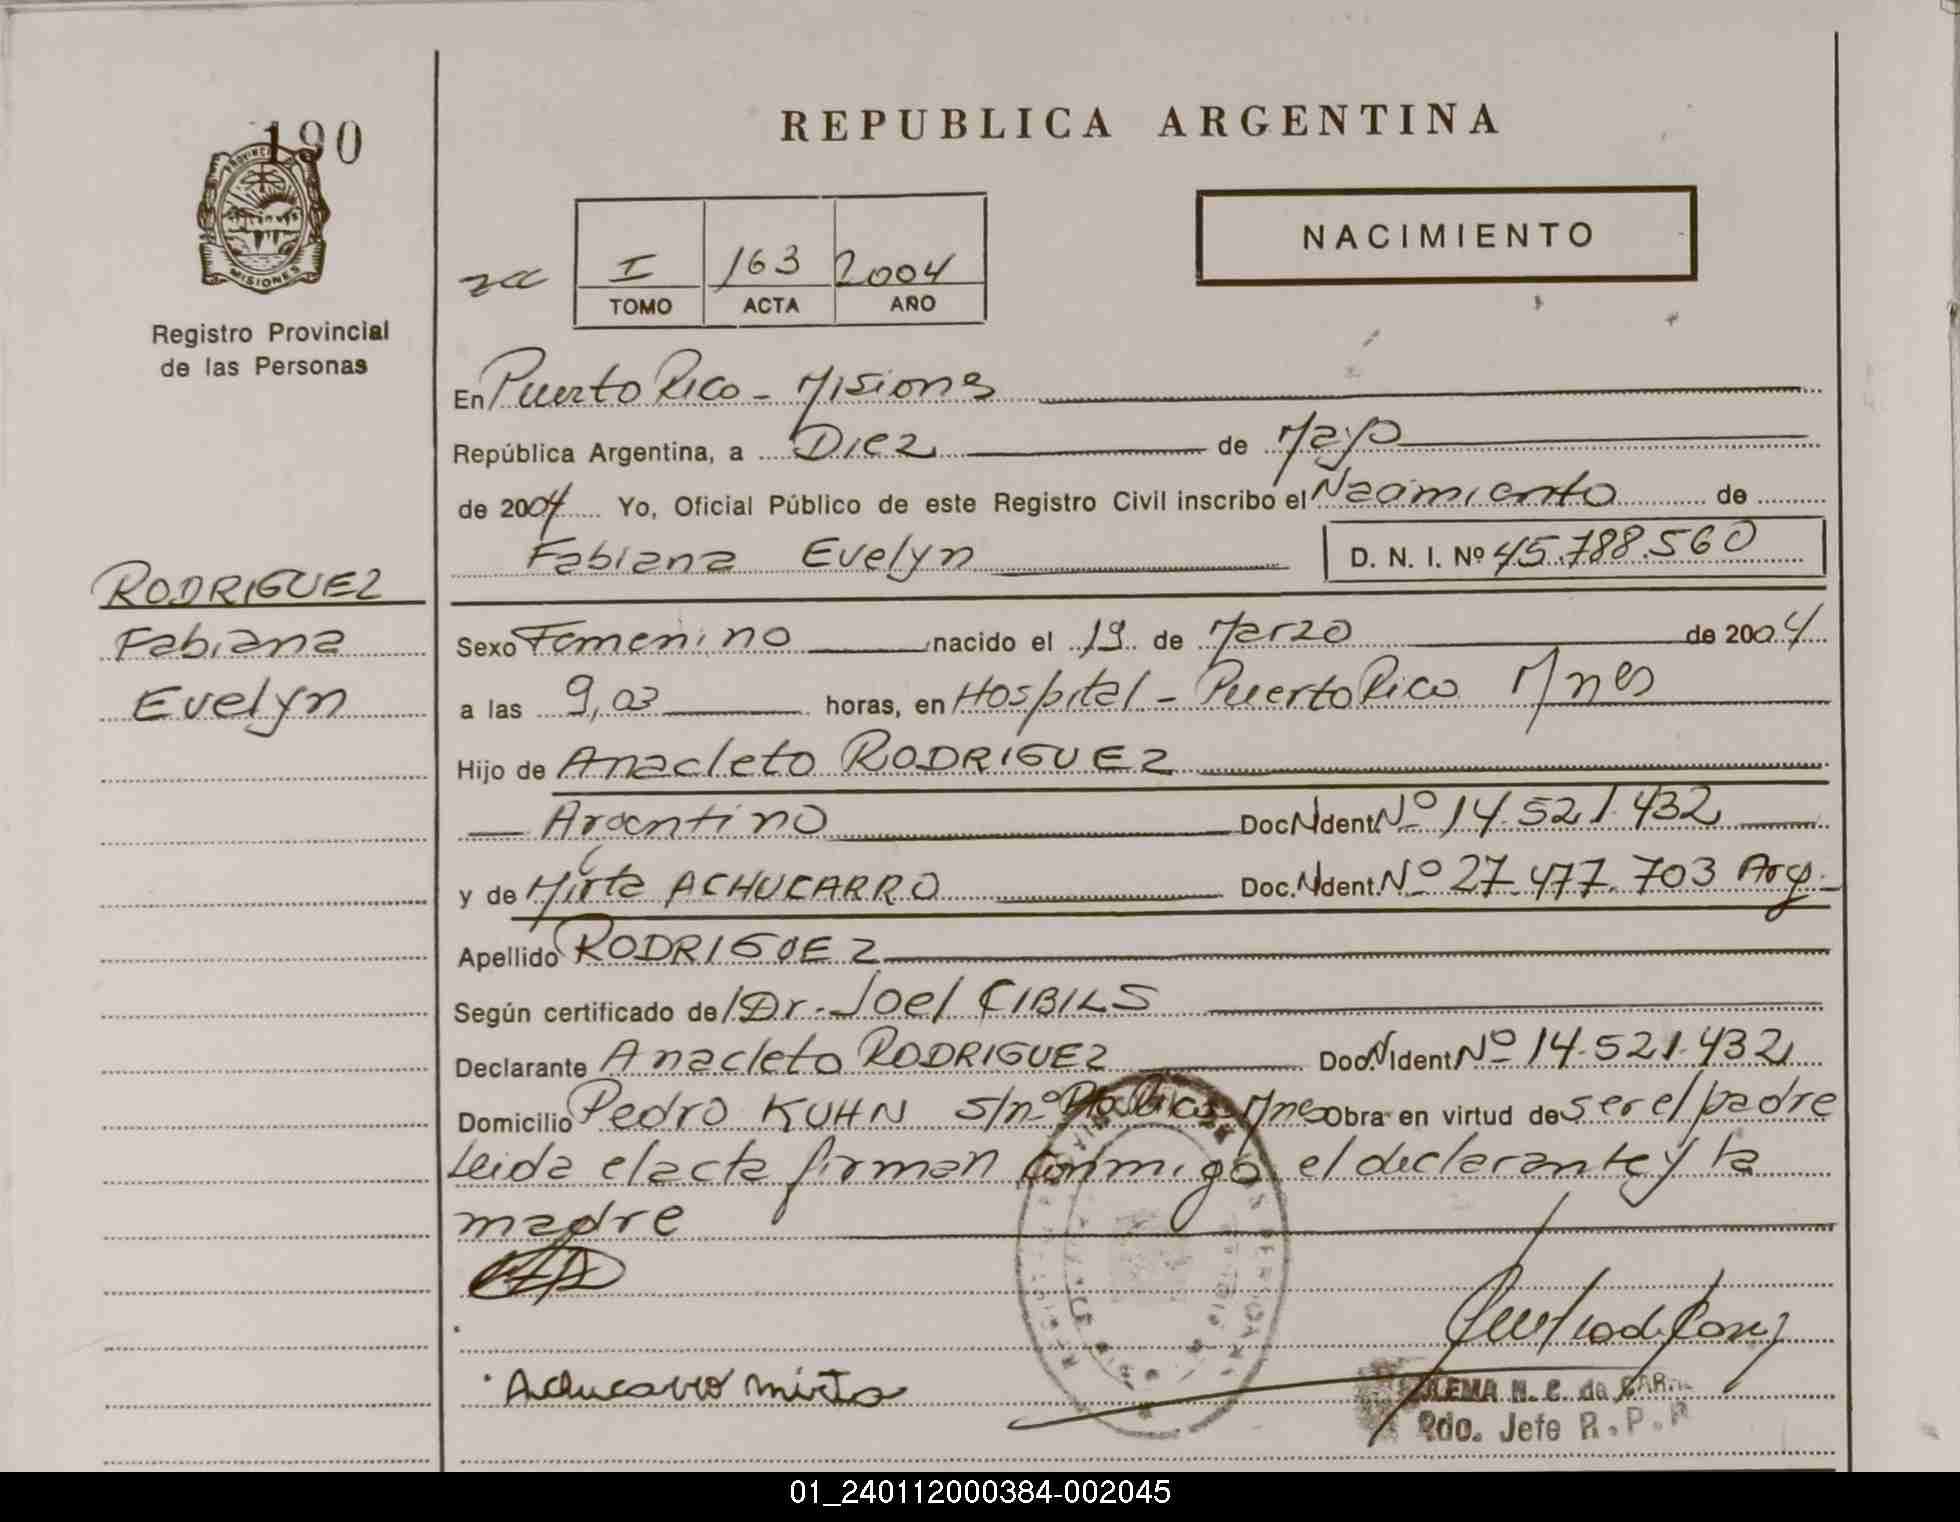 190
PROVINCIA
MISIONES
Registro Provincial
de las Personas
REPUBLICA ARGENTINA
NACIMIENTO
I 163 2004
TOMO ACTA AÑO
En Puerto Rico - Misiones
República Argentina, a Diez de Mayo
de 2004 Yo, Oficial Público de este Registro Civil inscribo el Nacimiento de
Fabiana Evelyn D. N. I. Nº 45.788.560
RODRIGUEZ
Fabiana
Evelyn
Sexo Femenino nacido el 19 de Marzo de 2004
a las 9,03 horas, en Hospital - Puerto Rico Mnes
Hijo de Anacleto RODRIGUEZ
Argentino Doc. N Ident. Nº 14.521.432
y de Mirta ACHUCARRO Doc. N Ident. Nº 27.477.703 Arg.
Apellido RODRIGUEZ
Según certificado de Dr. Joel CIBILS
Declarante Anacleto RODRIGUEZ Doc. N Ident. Nº 14.521.432
Domicilio Pedro KUHN s/nº Pto Rico Mnes Obra en virtud de ser el padre
Leida el acta firman conmigo el declarante y la
madre
Achucarro Mirta
H. C. de
Jefe R. P.
01_240112000384-002045